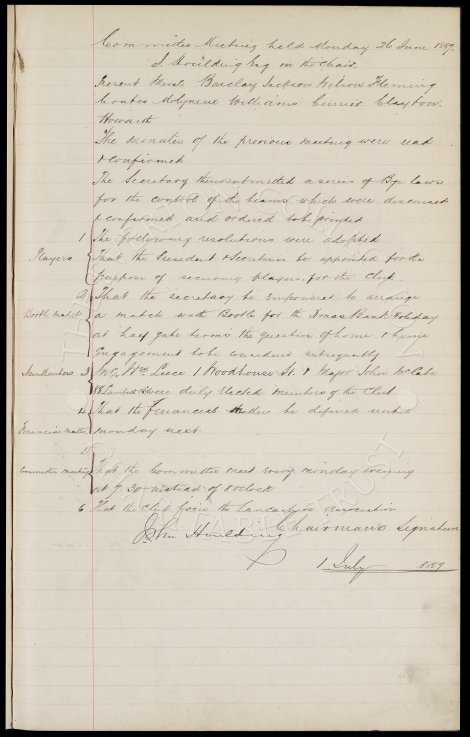 Committee Meeting held Monday 26 June 1889.
J. Houlding Esq in the Chair.
Present Messrs Barclay Jackson Wilson Fleming
Coates Molyneux Williams Currier Clayton
Howarth
The minutes of the previous meeting were read
& confirmed
The Secretary then submitted a series of Bye laws
for the control of the teams which were discussed
& confirmed and ordered to be printed
1 The following resolutions were adopted
Players That the President & Secretary be appointed for the
purpose of securing players for the Club
2 That the secretary be empowered to arrange
Bootle Match a match with Bootle for the Xmas Bank Holiday
at half gate terms the question of home &
Engagement to be considered subsequently
New Members 3 Mr Wm Leece 1 Woodhouse St. & Major John McCabe
were duly elected members of the Club
4 That the Financial matter be deferred until
Financial matter monday next.
5
Committee meetings That the Committee meet every monday evening
at 7.30 instead of 8 oclock
6 That the Club join the Lancashire association
John Houlding Chairmans Signature
1 July 1889